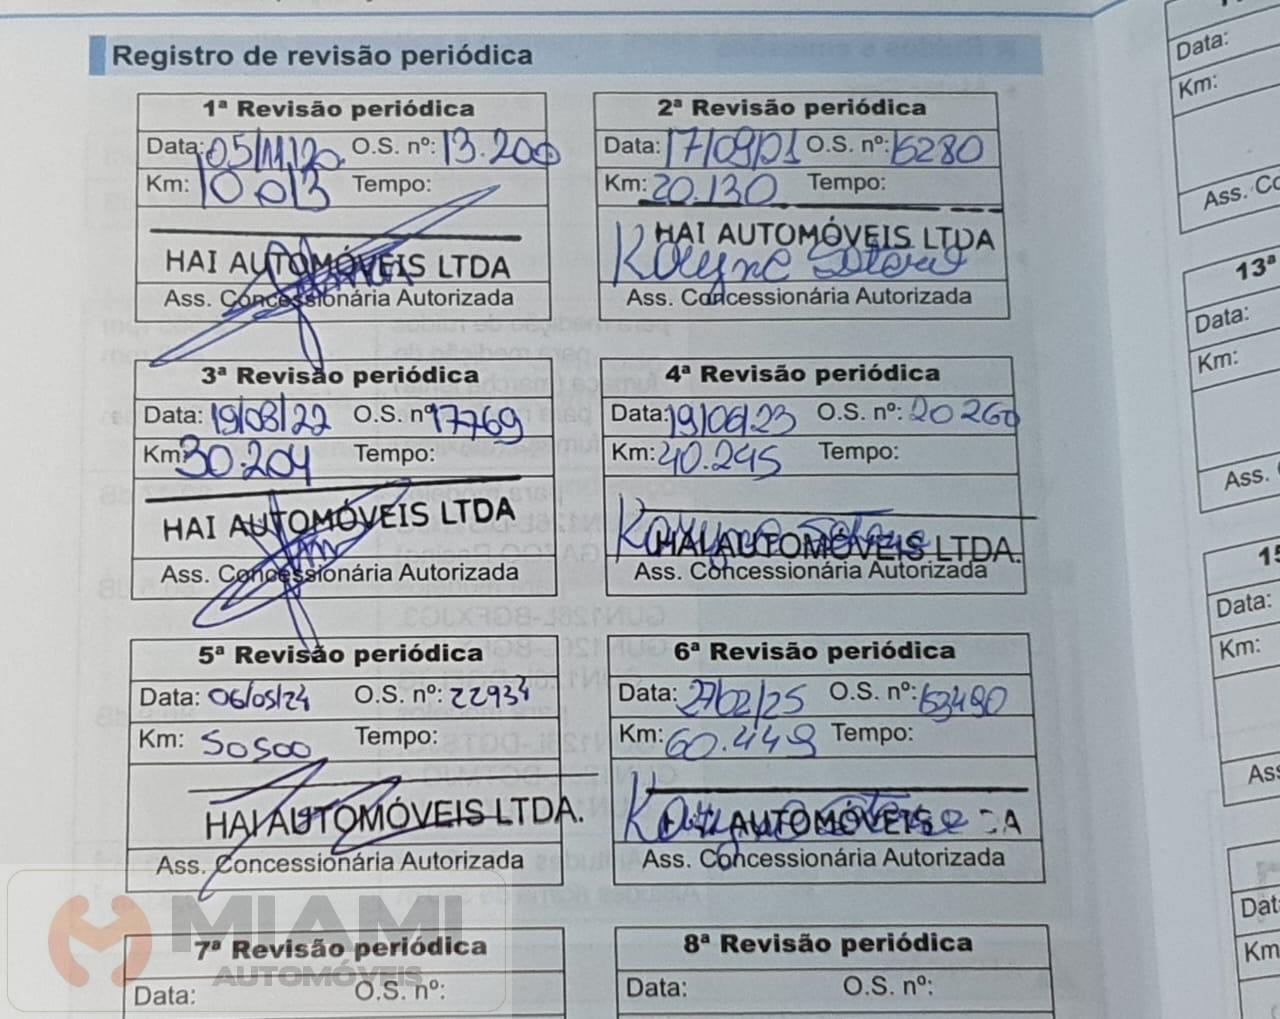 Registro de revisão periódica
1ª Revisão periódica
Data: 05/11/20 O.S. nº: 13.200
Km: 10.013 Tempo:
HAI AUTOMÓVEIS LTDA
Ass. Concessionária Autorizada
2ª Revisão periódica
Data: 17/09/21 O.S. nº: 15280
Km: 20.130 Tempo:
HAI AUTOMÓVEIS LTDA
Ass. Concessionária Autorizada
3ª Revisão periódica
Data: 19/08/22 O.S. nº 17769
Km: 30.204 Tempo:
HAI AUTOMÓVEIS LTDA
Ass. Concessionária Autorizada
4ª Revisão periódica
Data: 19/06/23 O.S. nº: 20260
Km: 40.245 Tempo:
HAI AUTOMÓVEIS LTDA.
Ass. Concessionária Autorizada
5ª Revisão periódica
Data: 06/05/24 O.S. nº: 22934
Km: 50500 Tempo:
HAI AUTOMÓVEIS LTDA.
Ass. Concessionária Autorizada
6ª Revisão periódica
Data: 27/02/25 O.S. nº:
Km: 60.449 Tempo:
AUTOMÓVEIS
Ass. Concessionária Autorizada
7ª Revisão periódica
Data: O.S. nº:
8ª Revisão periódica
Data: O.S. nº:
Data:
Km:
Ass. Co
13ª
Data:
Km:
Ass.
15
Data:
Km:
Ass
Dat
Km
MIAMI
AUTOMÓVEIS